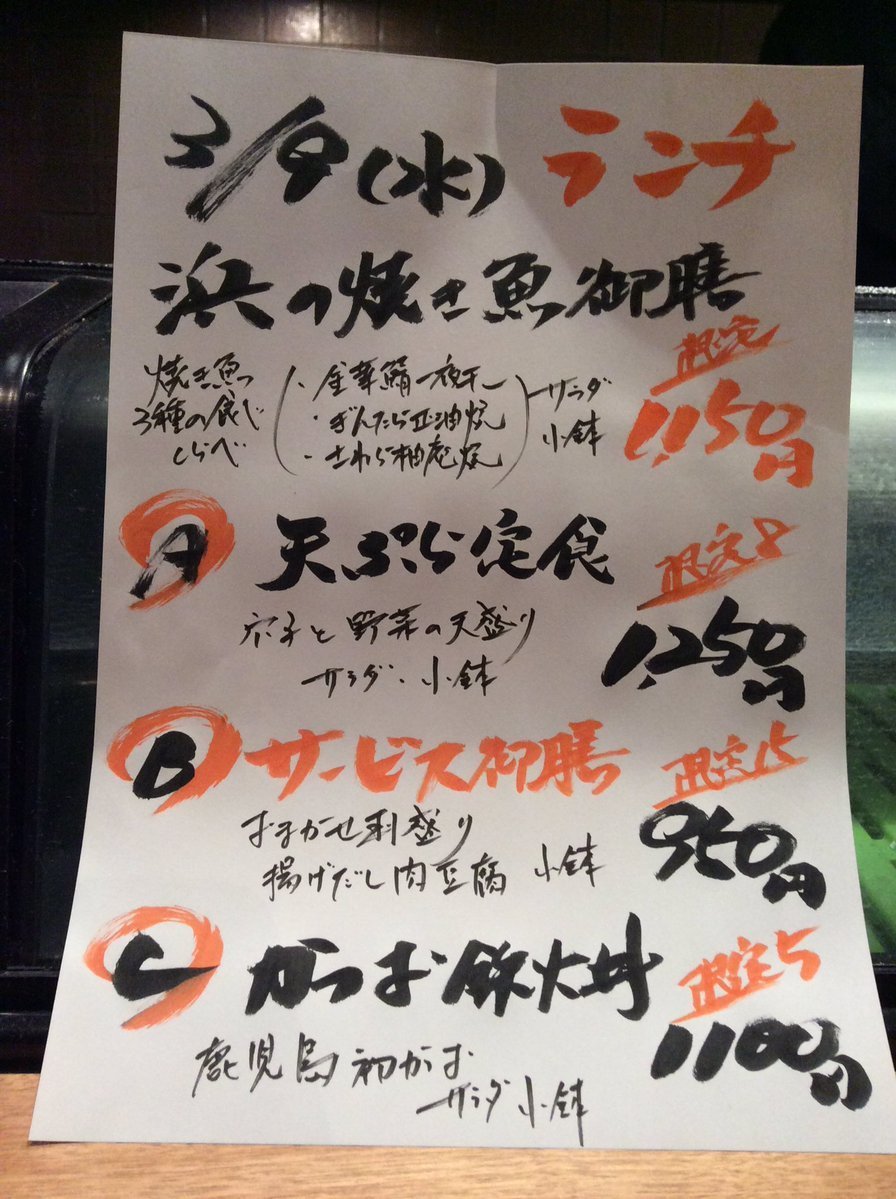 3/9(水) ランチ
浜の焼き魚御膳
限定
1,150円
焼き魚
3種の食べ
くらべ
・金華鯖一夜干し
・ぎんだら正油焼
・さわら柚庵焼
サラダ
小鉢
A 天ぷら定食 限定8
穴子と野菜の天盛り
サラダ・小鉢
1,250円
B サービス御膳 限定15
おまかせ刺盛り
揚げだし肉豆腐 小鉢
950円
C かつお鉄火丼 限定5
1100円
鹿児島初がつお
サラダ 小鉢